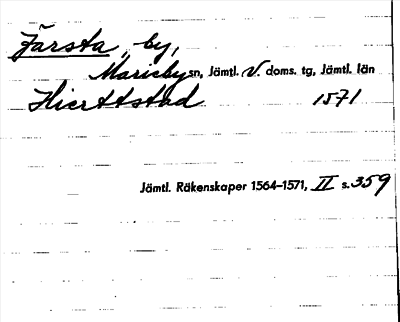 Järsta, by,
Marieby sn, Jämtl. V. doms. tg, Jämtl. län
Hierttstad 1571
Jämtl. Räkenskaper 1564-1571, II s. 359